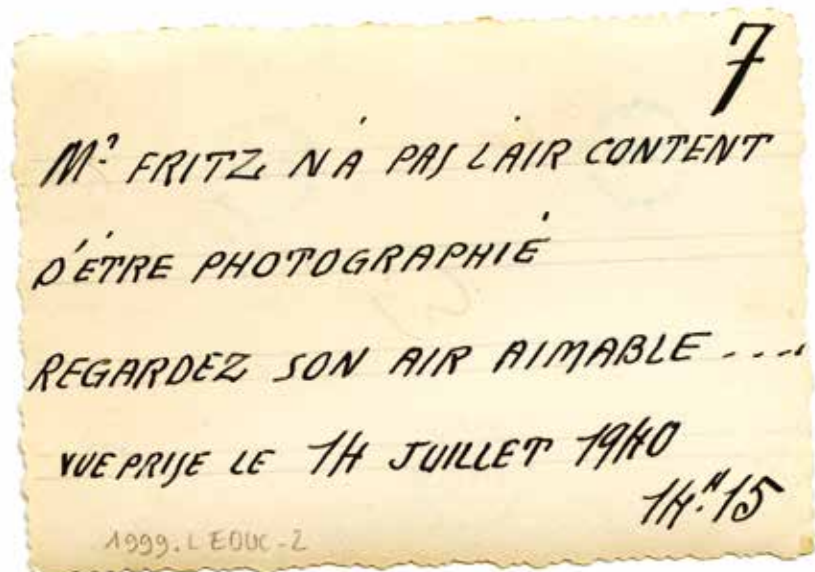 7
Mr FRITZ N'A PAS L'AIR CONTENT
D'ÊTRE PHOTOGRAPHIÉ
REGARDEZ SON AIR AIMABLE ....
VUE PRISE LE 14 JUILLET 1940
14H15
1999.LEDUC-2